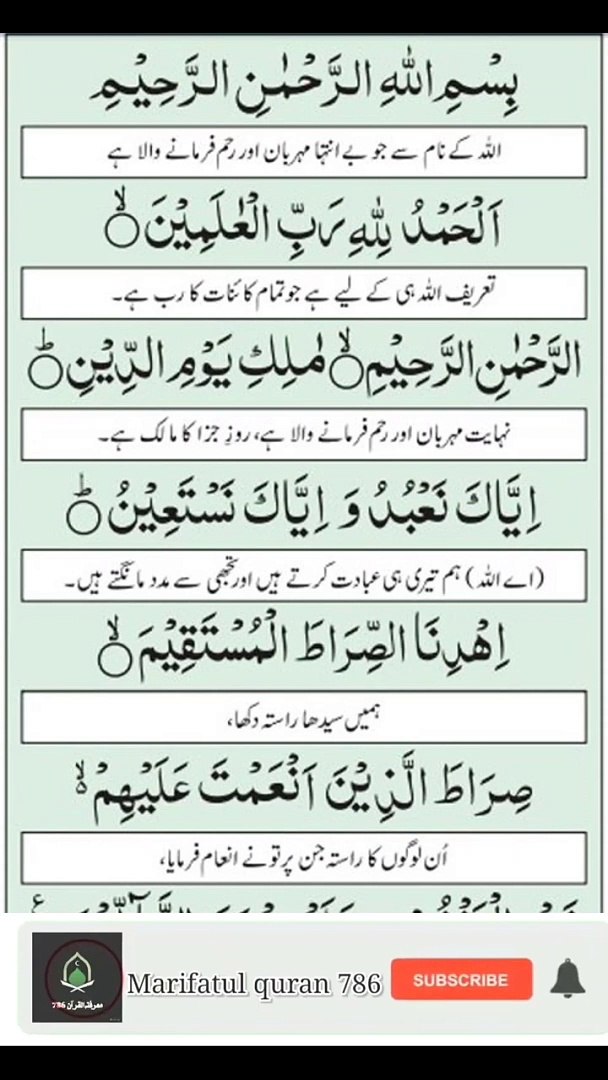 بِسْمِ اللهِ الرَّحْمٰنِ الرَّحِيْمِ
اللہ کے نام سے جو بے انتہا مہربان اور رحم فرمانے والا ہے
اَلْحَمْدُ لِلّٰهِ رَبِّ الْعٰلَمِيْنَ ۙ
تعریف اللہ ہی کے لیے ہے جو تمام کائنات کا رب ہے۔
الرَّحْمٰنِ الرَّحِيْمِ ۙ مٰلِكِ يَوْمِ الدِّيْنِ ؕ
نہایت مہربان اور رحم فرمانے والا ہے، روزِ جزا کا مالک ہے۔
اِيَّاكَ نَعْبُدُ وَ اِيَّاكَ نَسْتَعِيْنُ ؕ
(اے اللہ) ہم تیری ہی عبادت کرتے ہیں اور تجھی سے مدد مانگتے ہیں۔
اِهْدِنَا الصِّرَاطَ الْمُسْتَقِيْمَ ۙ
ہمیں سیدھا راستہ دکھا،
صِرَاطَ الَّذِيْنَ اَنْعَمْتَ عَلَيْهِمْ ۙ
اُن لوگوں کا راستہ جن پر تو نے انعام فرمایا،
معرفۃ القرآن 786
Marifatul quran 786
SUBSCRIBE